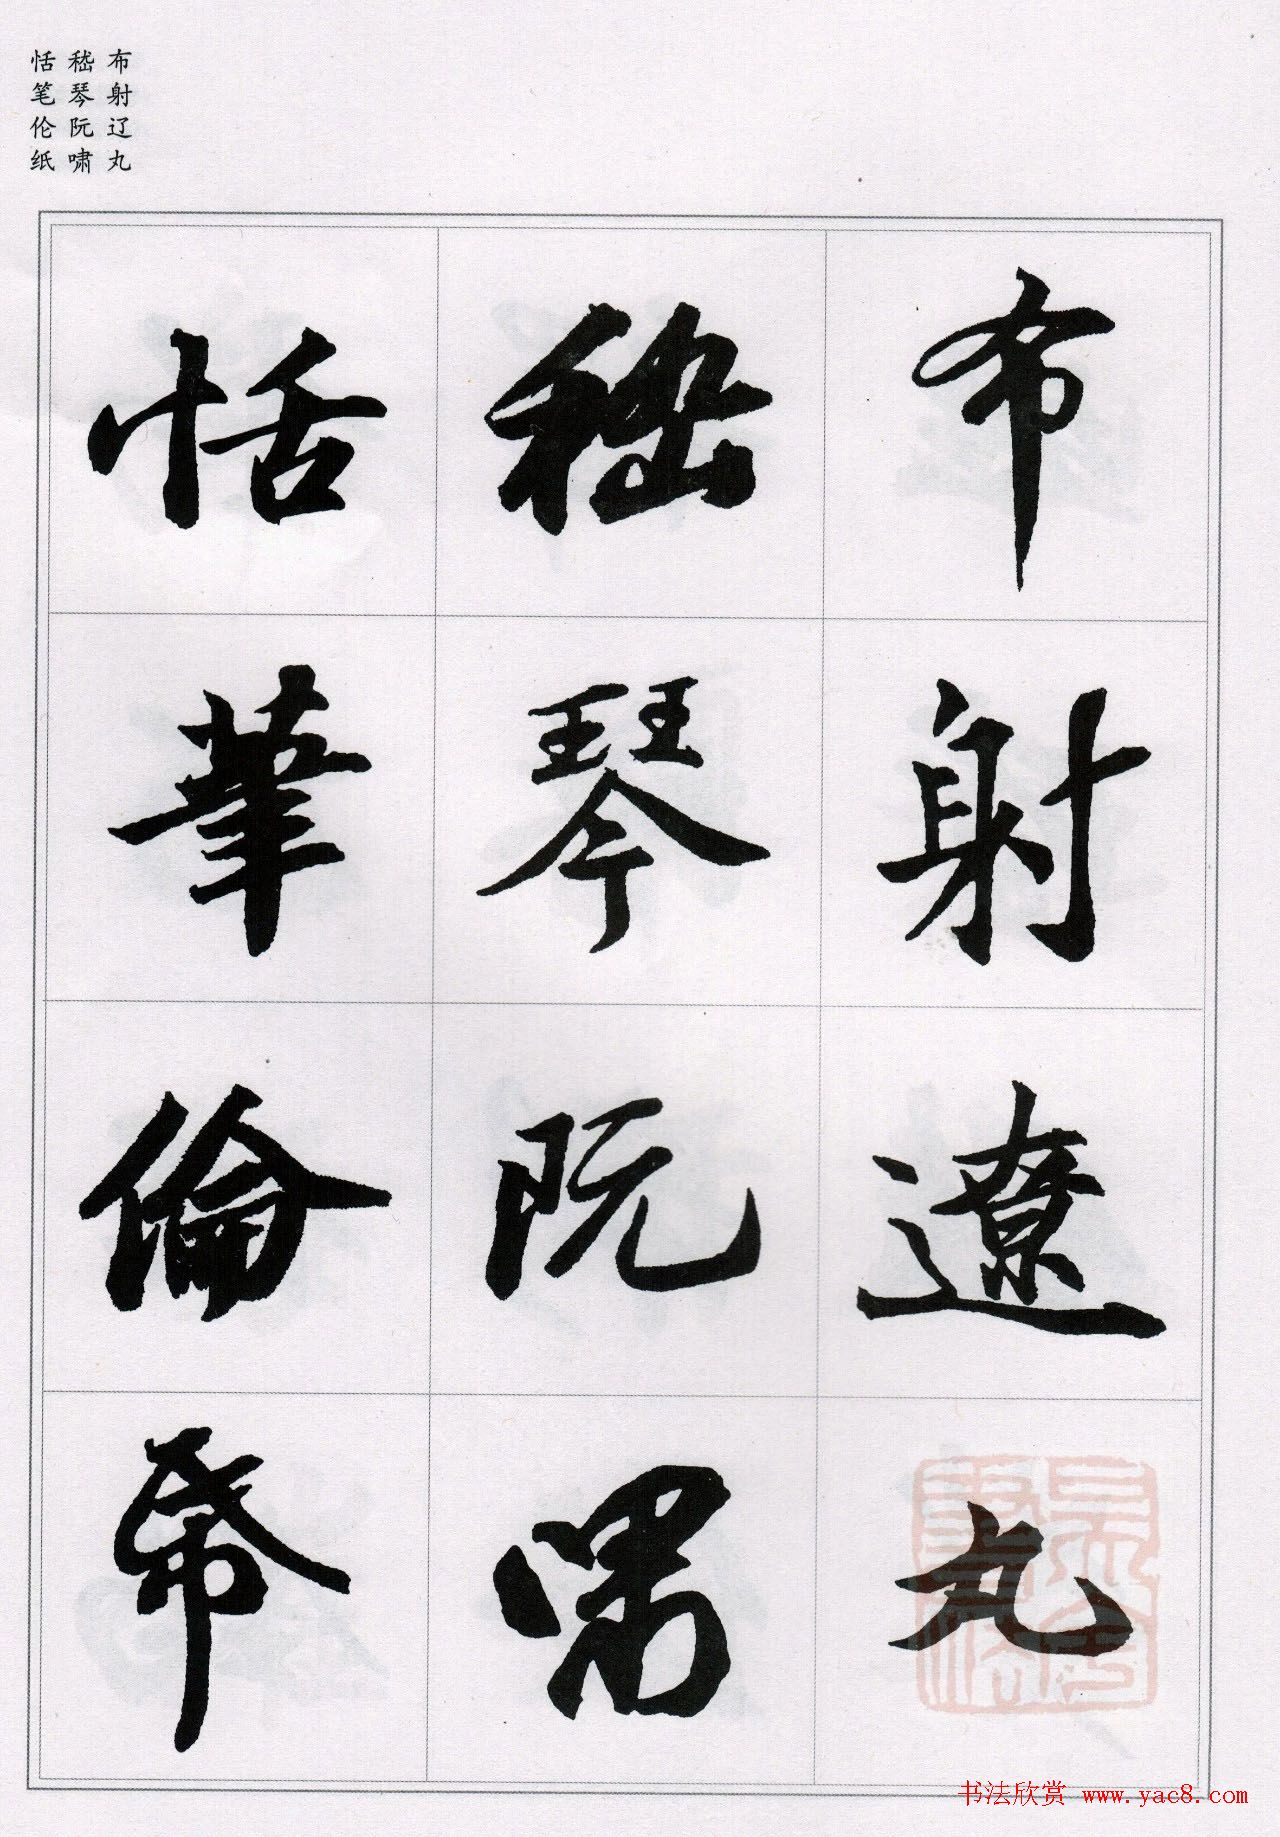 布射辽丸
嵇琴阮啸
恬笔伦纸
布射遼丸
嵇琴阮嘯
恬筆倫帋
书法欣赏 www.yac8.com